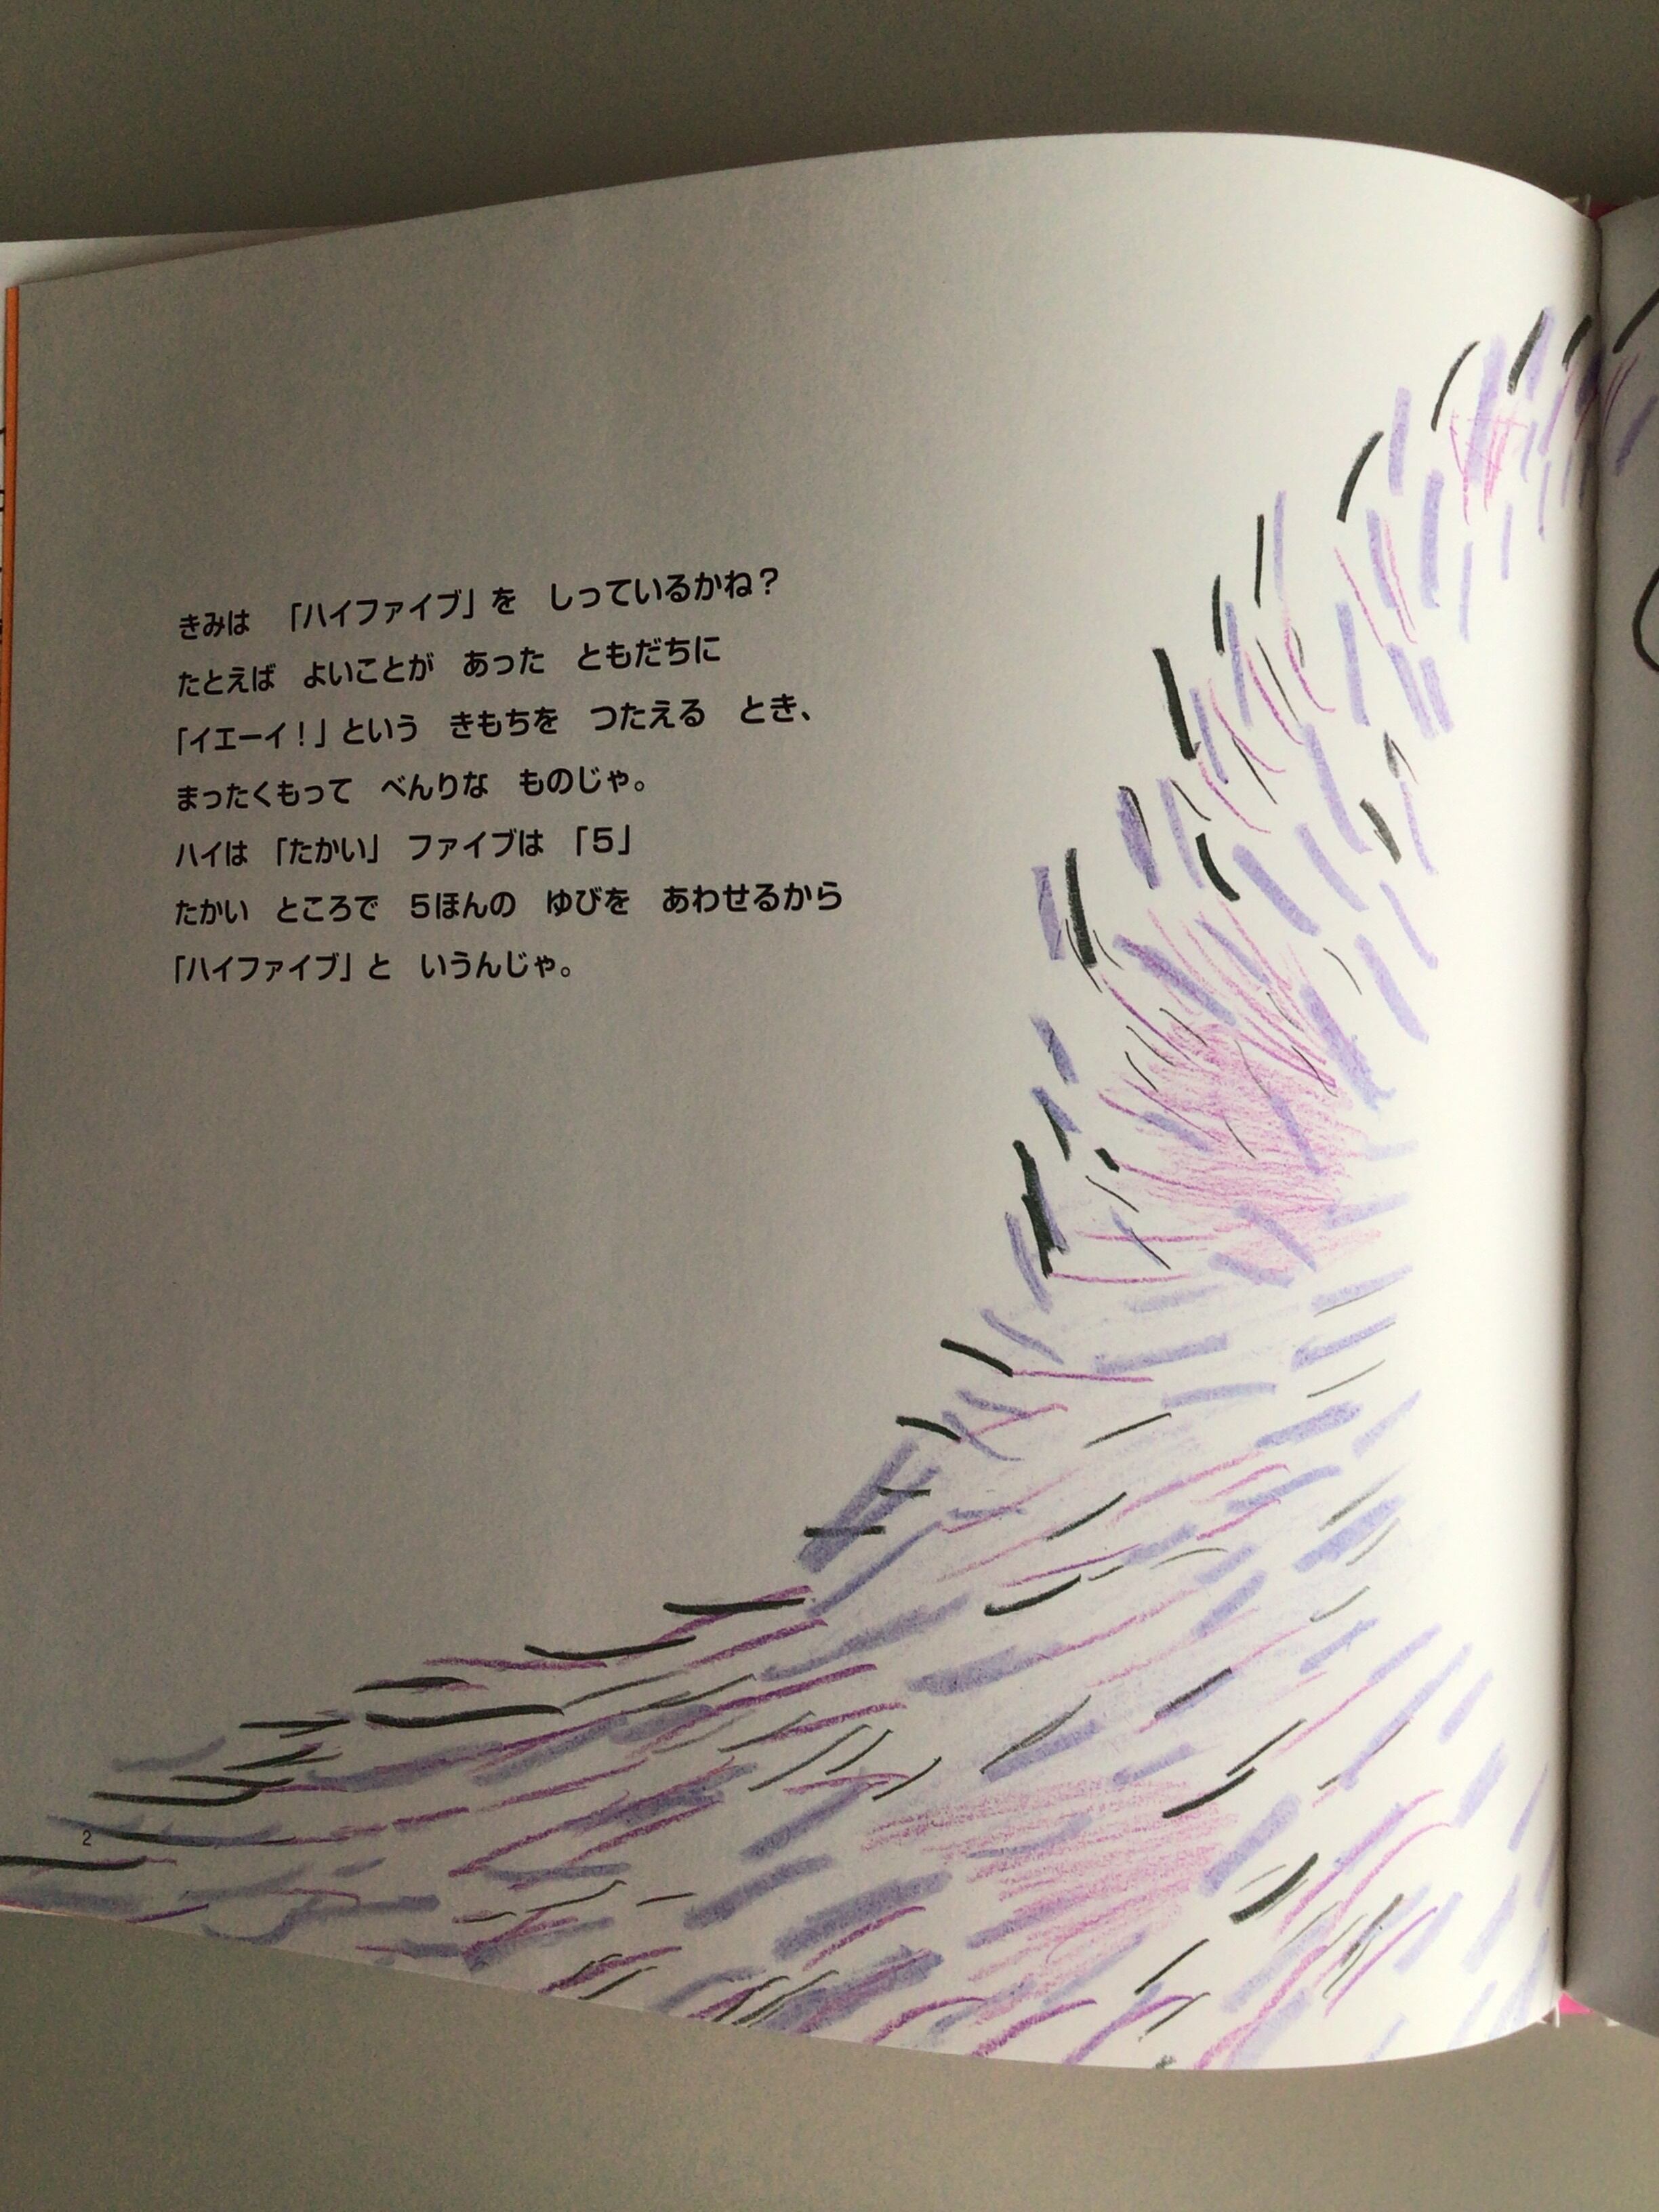 きみは　「ハイファイブ」を　しっているかね？
たとえば　よいことが　あった　ともだちに
「イエーイ！」という　きもちを　つたえる　とき、
まったくもって　べんりな　ものじゃ。
ハイは　「たかい」　ファイブは　「５」
たかい　ところで　５ほんの　ゆびを　あわせるから
「ハイファイブ」と　いうんじゃ。
2